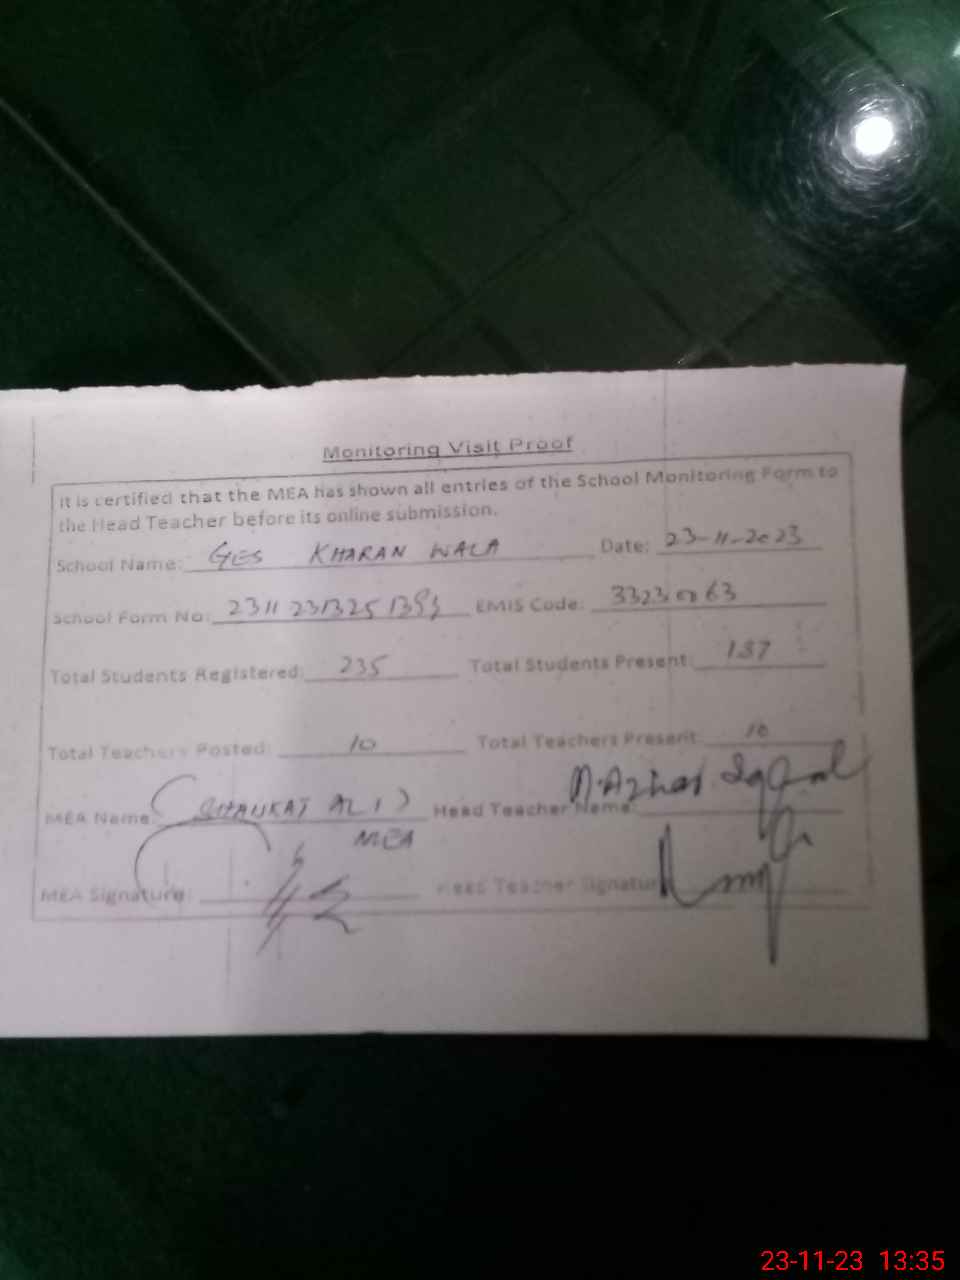 Monitoring Visit Proof
It is certified that the MEA has shown all entries of the School Monitoring Form to
the Head Teacher before its online submission.
School Name: GES KHARAN WALA Date: 23-11-2023
School Form No: EMIS Code:
Total Students Registered: 235 Total Students Present: 187
Total Teachers Posted: 10 Total Teachers Present: 10
MEA Name: (SHAUKAT ALI) Head Teacher Name: M. Azhar Iqbal
MEA
MEA Signature: Head Teacher Signature
23-11-23 13:35